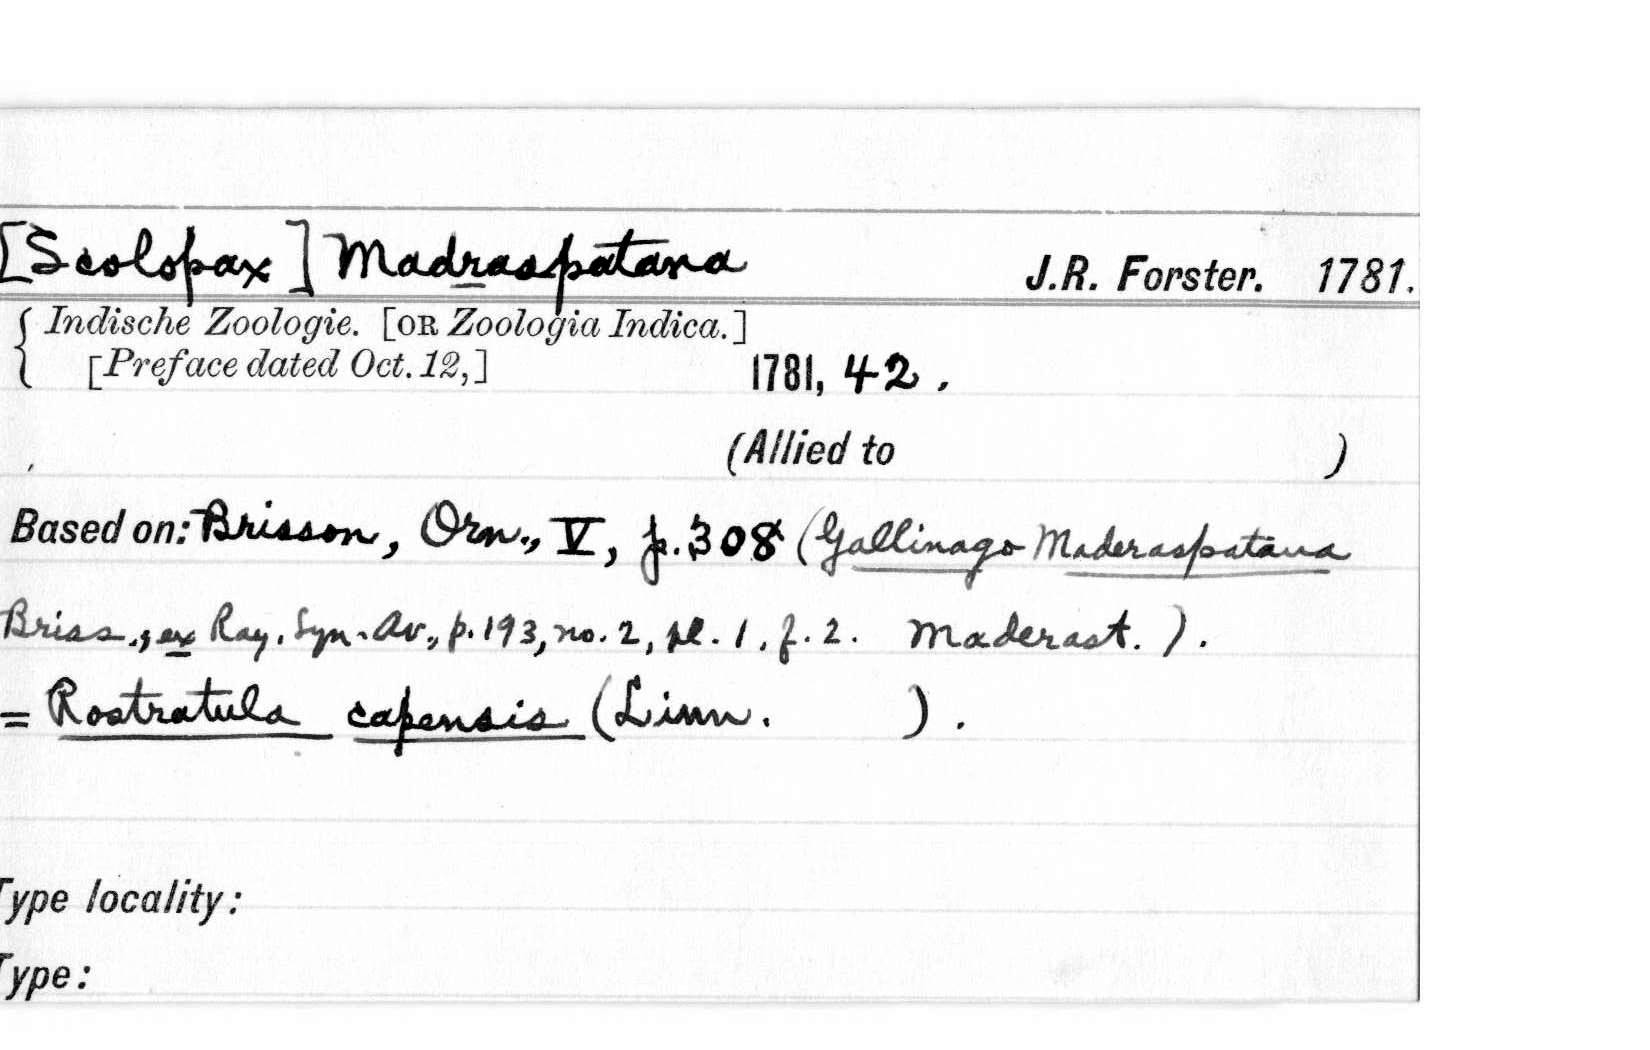 [Scolopax] Madraspatana J.R. Forster. 1781.
Indische Zoologie. [OR Zoologia Indica.]
[Preface dated Oct. 12,] 1781, 42.
(Allied to )
Based on: Brisson, Orn., V, p. 308 (Gallinago Maderaspatana
Briss., ex Ray. Syn. Av., p. 193, no. 2, pl. 1, f. 2. Maderast.).
= Rostratula capensis (Linn. ).
Type locality:
Type: